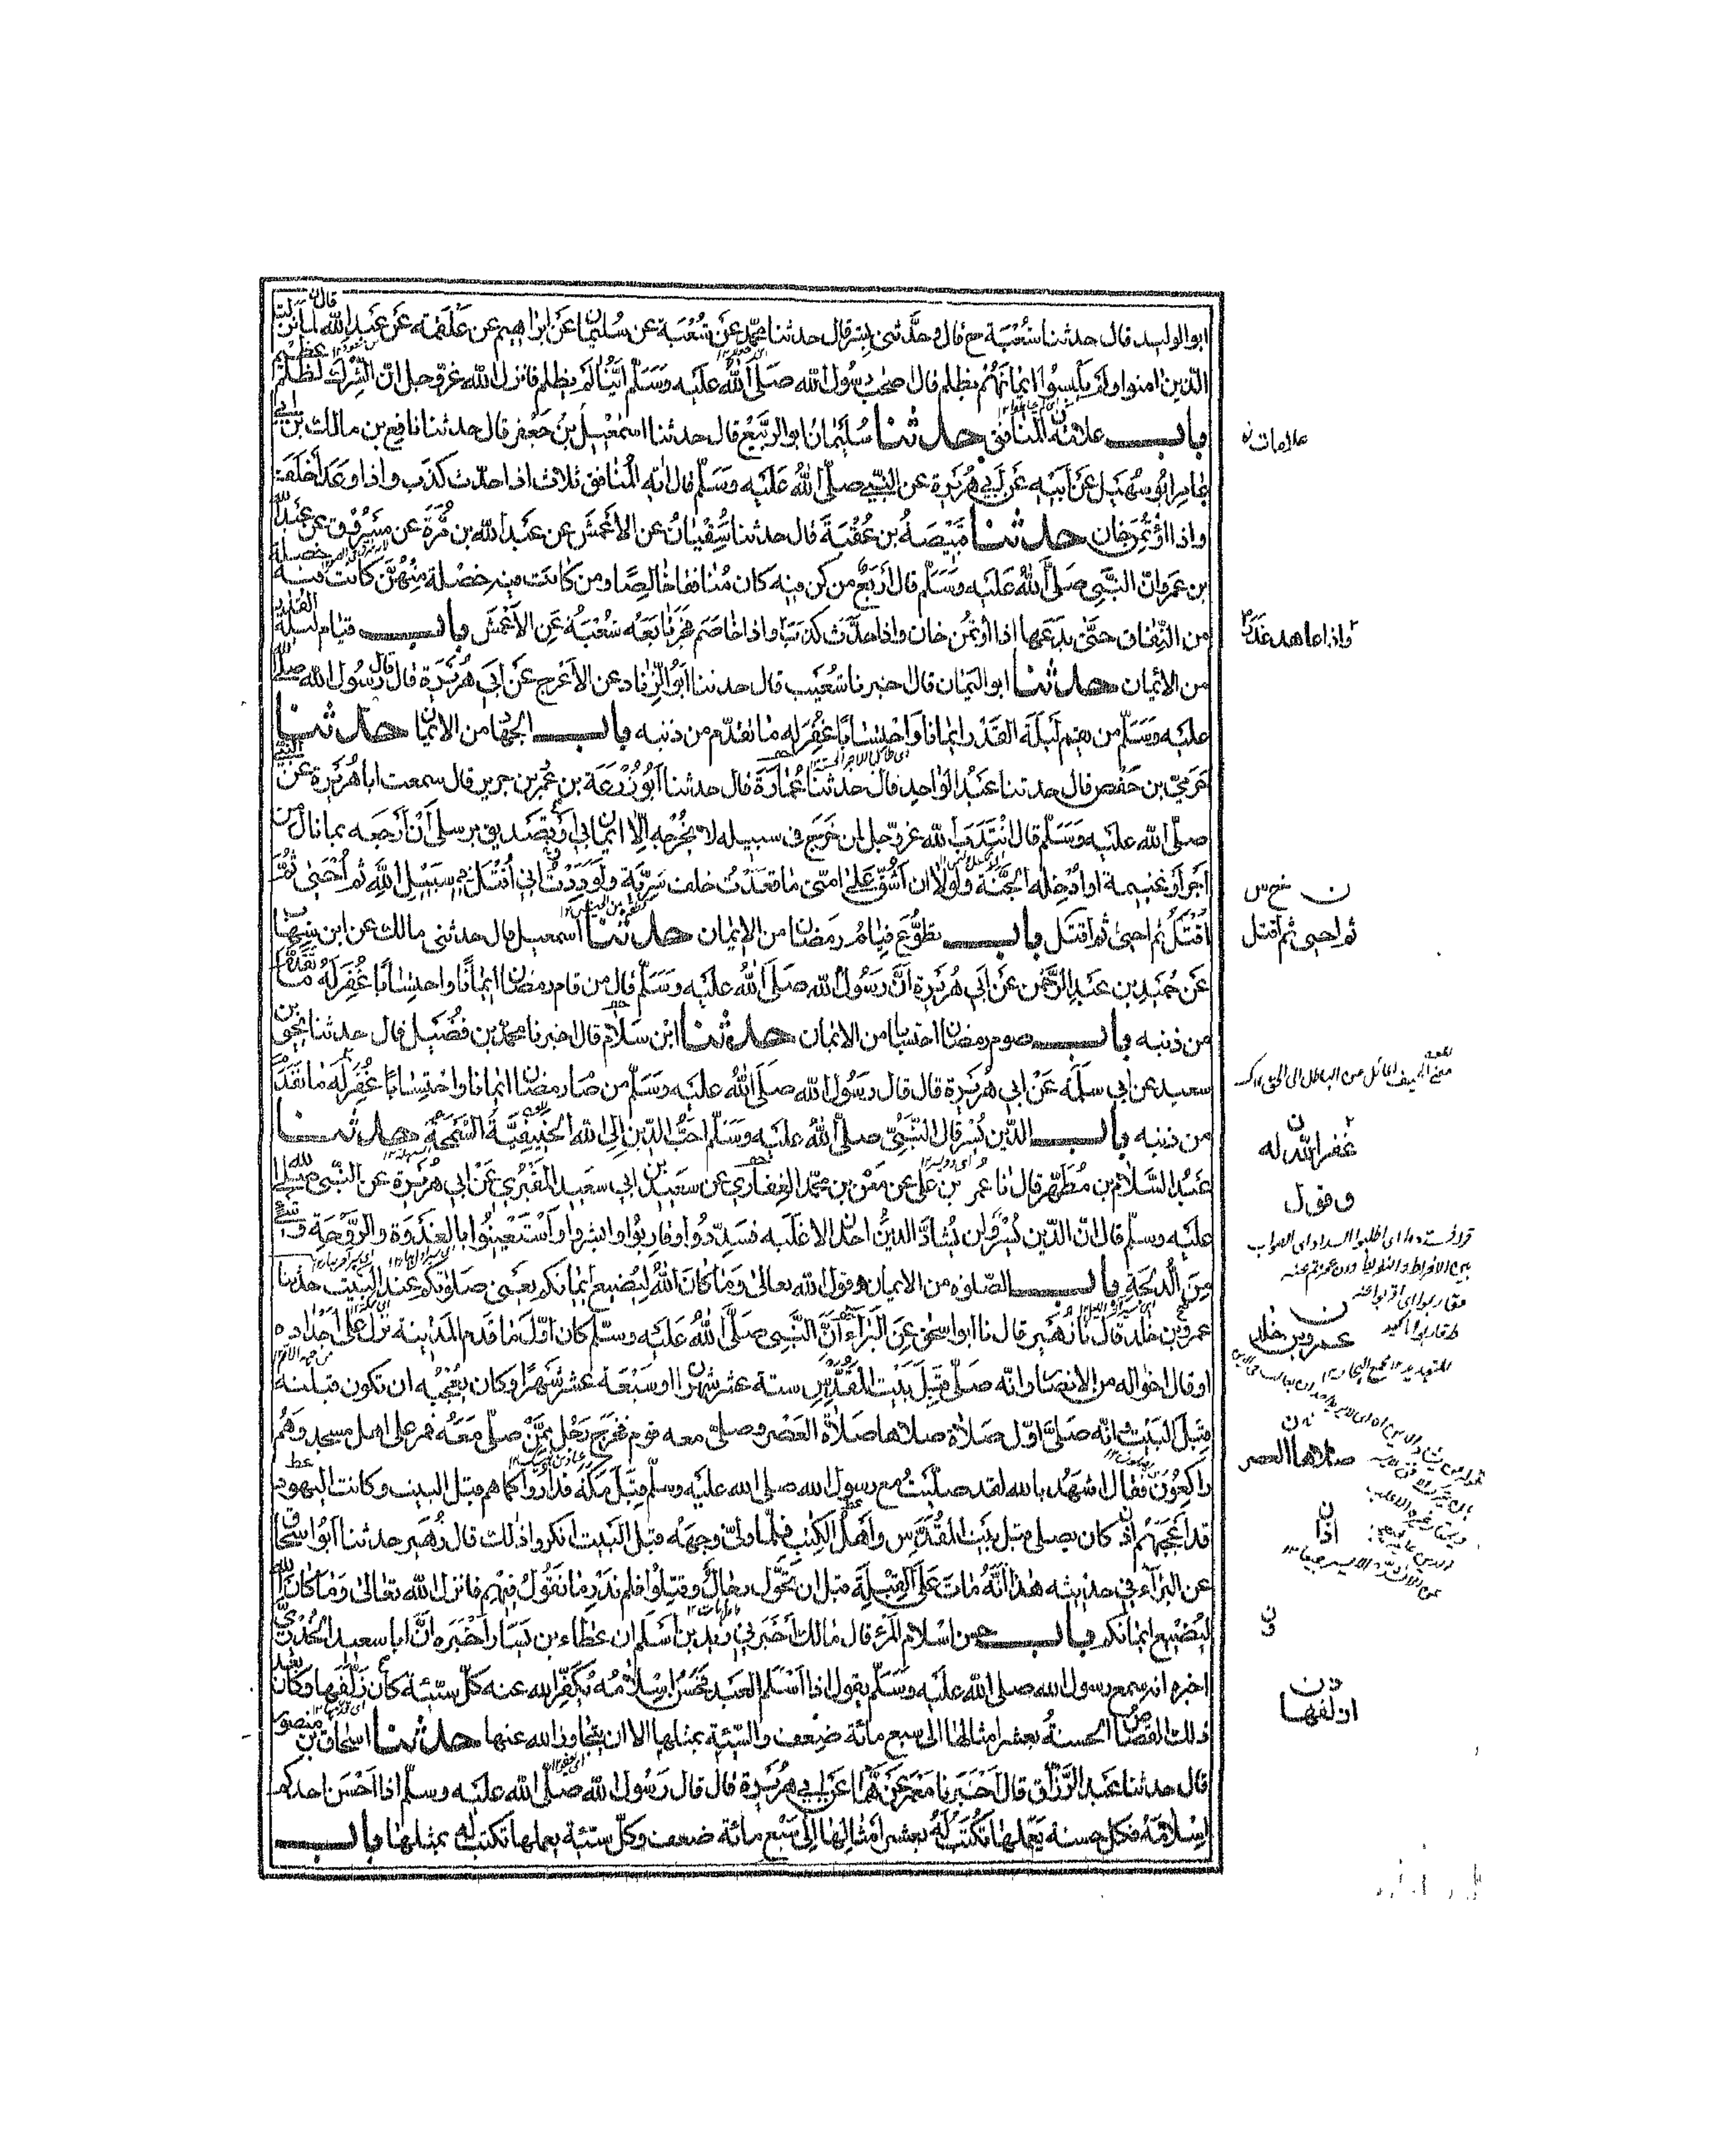 ابو الوليد قال حدثنا شعبة ح قال وحدثنى بشر قال حدثنا محمد عن شعبة عن سليمان عن ابراهيم عن علقمة عن عبد الله لما نزلت
الذين امنوا ولم يلبسوا ايمانهم بظلم قال اصحاب رسول الله صلى الله عليه وسلم اينا لم يظلم فانزل الله عز وجل ان الشرك لظلم عظيم
باب علامة المنافق حدثنا سليمان ابو الربيع قال حدثنا اسمعيل بن جعفر قال حدثنا نافع بن مالك بن ابى
عامر ابو سهيل عن ابيه عن ابى هريرة عن النبى صلى الله عليه وسلم قال اية المنافق ثلاث اذا حدث كذب واذا وعد اخلف
واذا اؤتمن خان حدثنا قبيصة بن عقبة قال حدثنا سفيان عن الاعمش عن عبد الله بن مرة عن مسروق عن عبد الله
بن عمرو ان النبى صلى الله عليه وسلم قال اربع من كن فيه كان منافقا خالصا ومن كانت فيه خصلة منهن كانت فيه خصلة
من النفاق حتى يدعها اذا اؤتمن خان واذا حدث كذب واذا خاصم فجر تابعه شعبة عن الاعمش باب قيام ليلة القدر
من الايمان حدثنا ابو اليمان قال اخبرنا شعيب قال حدثنا ابو الزناد عن الاعرج عن ابى هريرة قال قال رسول الله صلى الله
عليه وسلم من يقم ليلة القدر ايمانا واحتسابا غفر له ما تقدم من ذنبه باب الجهاد من الايمان حدثنا
حرمى بن حفص قال حدثنا عبد الواحد قال حدثنا عمارة قال حدثنا ابو زرعة بن عمرو بن جرير قال سمعت ابا هريرة عن النبى
صلى الله عليه وسلم قال انتدب الله عز وجل لمن خرج فى سبيله لا يخرجه الا ايمان بى او تصديق برسلى ان ارجعه بما نال من
اجر او غنيمة او ادخله الجنة ولولا ان اشق على امتى ما قعدت خلف سرية ولوددت انى اقتل فى سبيل الله ثم احيى ثم
اقتل ثم احيى ثم اقتل باب تطوع قيام رمضان من الايمان حدثنا اسمعيل قال حدثنى مالك عن ابن شهاب
عن حميد بن عبد الرحمن عن ابى هريرة ان رسول الله صلى الله عليه وسلم قال من قام رمضان ايمانا واحتسابا غفر له ما تقدم
من ذنبه باب صوم رمضان احتسابا من الايمان حدثنا ابن سلام قال اخبرنا محمد بن فضيل قال حدثنا يحيى بن
سعيد عن ابى سلمة عن ابى هريرة قال قال رسول الله صلى الله عليه وسلم من صام رمضان ايمانا واحتسابا غفر له ما تقدم
من ذنبه باب الدين يسر قال النبى صلى الله عليه وسلم احب الدين الى الله الحنيفية السمحة حدثنا
عبد السلام بن مطهر قال نا عمر بن على عن معن بن محمد الغفارى عن سعيد بن ابى سعيد المقبرى عن ابى هريرة عن النبى صلى الله
عليه وسلم قال ان الدين يسر ولن يشاد الدين احد الا غلبه فسددوا وقاربوا وابشروا واستعينوا بالغدوة والروحة وشىء
من الدلجة باب الصلوة من الايمان وقول الله تعالى وما كان الله ليضيع ايمانكم يعنى صلوتكم عند البيت حدثنا
عمرو بن خلد قال نا زهير قال نا ابو اسحق عن البراء ان النبى صلى الله عليه وسلم كان اول ما قدم المدينة نزل على اجداده
او قال اخواله من الانصار وانه صلى قبل بيت المقدس ستة عشر شهرا او سبعة عشر شهرا وكان يعجبه ان تكون قبلته
قبل البيت وانه صلى اول صلاة صلاها صلاة العصر وصلى معه قوم فخرج رجل ممن صلى معه فمر على اهل مسجد وهم
راكعون فقال اشهد بالله لقد صليت مع رسول الله صلى الله عليه وسلم قبل مكة فداروا كما هم قبل البيت وكانت اليهود
قد اعجبهم اذ كان يصلى قبل بيت المقدس واهل الكتب فلما ولى وجهه قبل البيت انكروا ذلك قال زهير حدثنا ابو اسحاق
عن البراء فى حديثه هذا انه مات على القبلة قبل ان تحول رجال وقتلوا فلم ندر ما نقول فيهم فانزل الله تعالى وما كان الله
ليضيع ايمانكم باب حسن اسلام المرء قال مالك اخبرنى زيد بن اسلم ان عطاء بن يسار اخبره ان ابا سعيد الخدرى
اخبره انه سمع رسول الله صلى الله عليه وسلم يقول اذا اسلم العبد فحسن اسلامه يكفر الله عنه كل سيئة كان زلفها وكان بعد
ذلك القصاص الحسنة بعشر امثالها الى سبع مائة ضعف والسيئة بمثلها الا ان يتجاوز الله عنها حدثنا اسحاق بن منصور
قال حدثنا عبد الرزاق قال اخبرنا معمر عن همام عن ابى هريرة قال قال رسول الله صلى الله عليه وسلم اذا احسن احدكم
اسلامه فكل حسنة يعملها تكتب له بعشر امثالها الى سبع مائة ضعف وكل سيئة يعملها تكتب له بمثلها باب
علامات
واذا عاهد غدر
ثم احيى ثم اقتل
غفر الله له
وقول
عمرو بن خلد
صلاها العصر
اذا
ازلفها